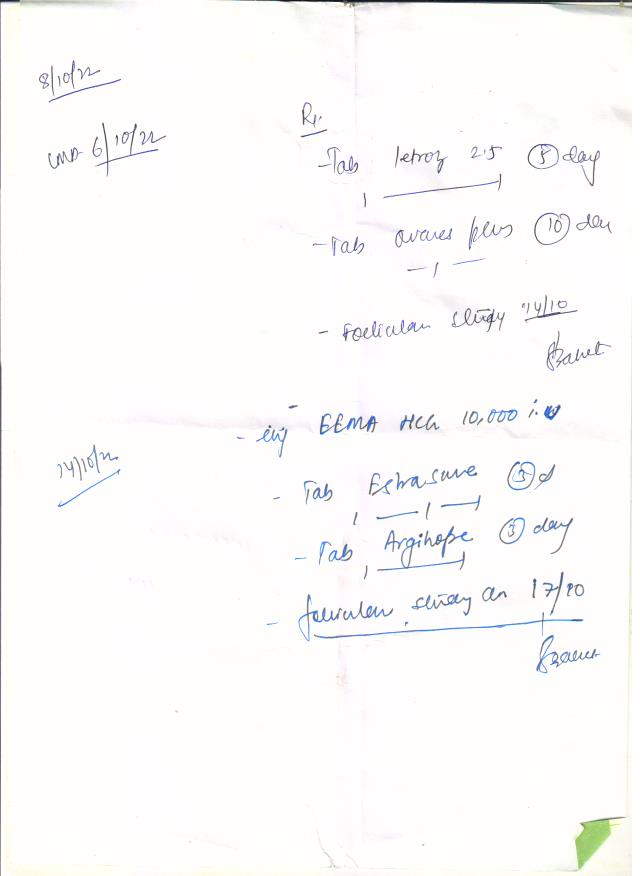 8/10/22
LMP 6/10/22
Rx
- Tab letroz 2.5 (5) day
1 ——— 1
- Tab ovares plus (10) day
— 1 —
- Follicular study 14/10
14/10/22
- inj EEMA HCG 10,000 i.u
- Tab Estrasure (3) d
1 — 1 — 1
- Tab Argihope (3) day
1 ——— 1
- follicular study on 17/10